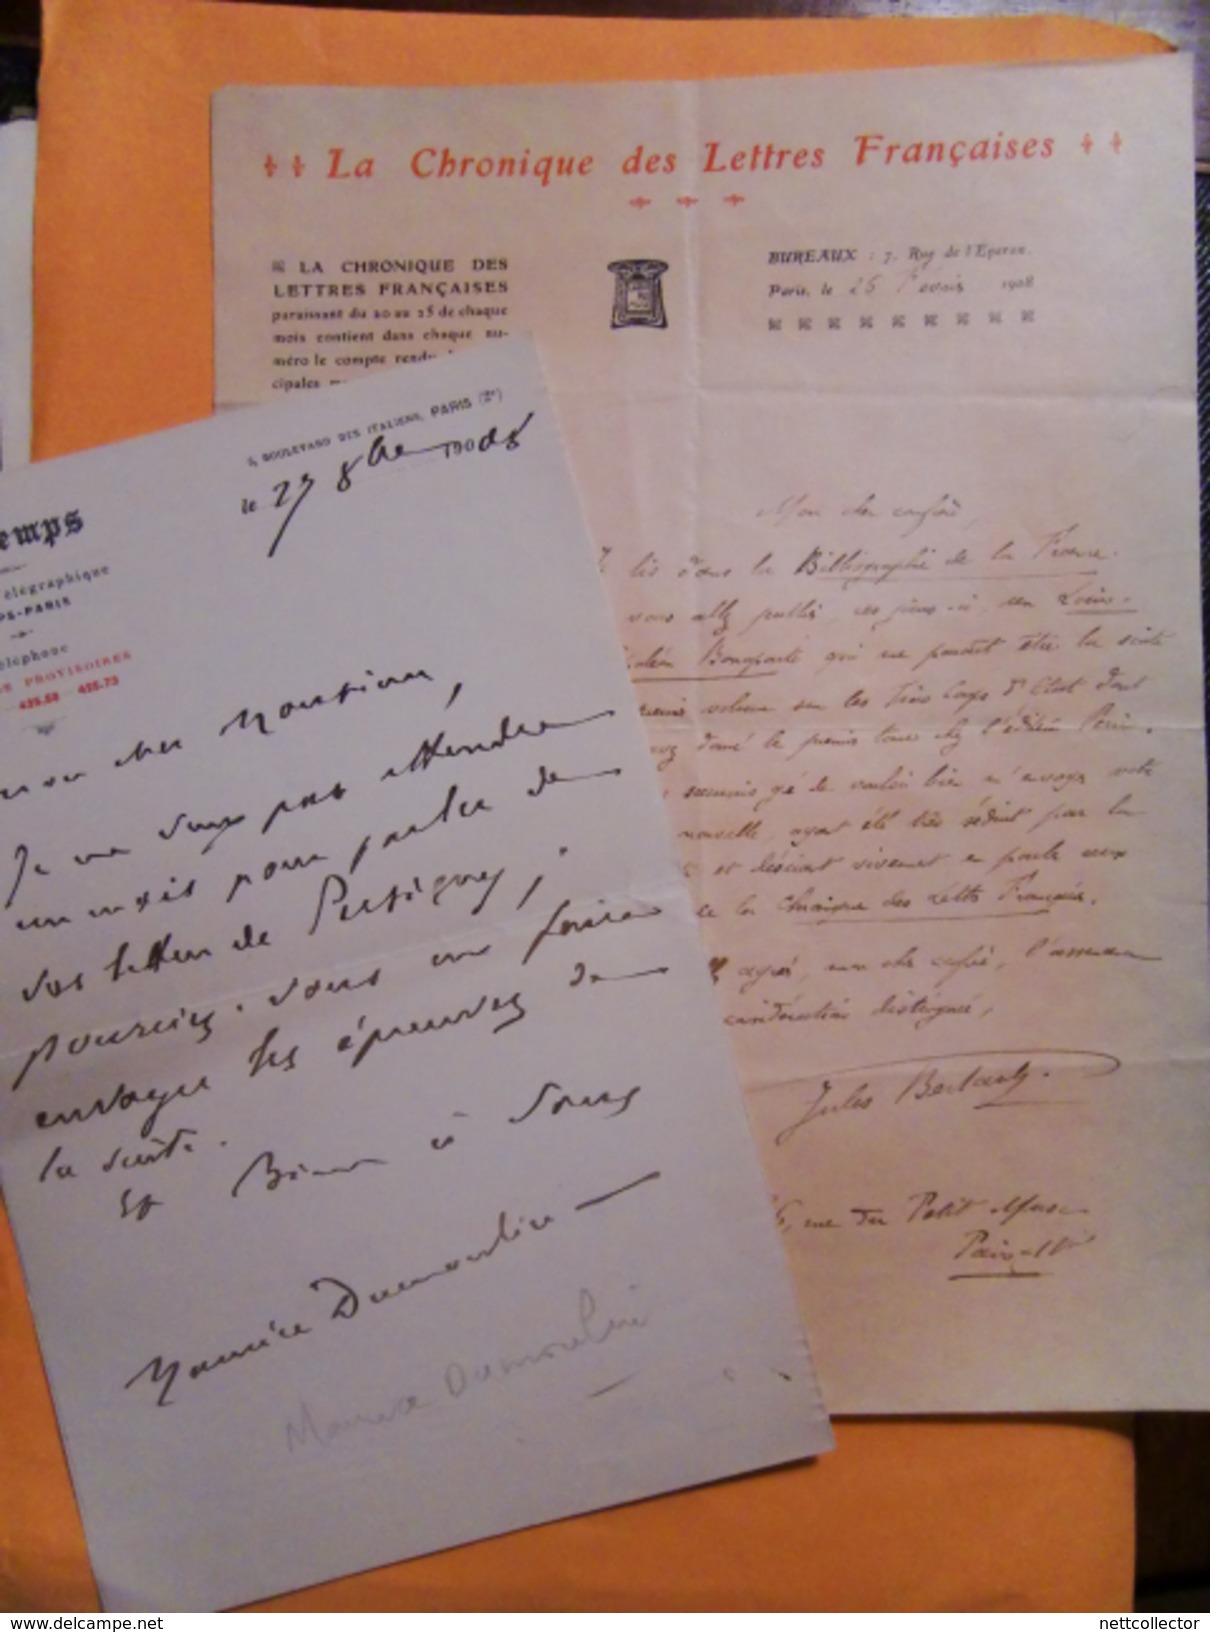 La Chronique des Lettres Françaises
LA CHRONIQUE DES
LETTRES FRANÇAISES
paraissant du 20 au 25 de chaque
mois contient dans chaque nu-
méro le compte rendu
cipales
BUREAUX : 7, Rue de l'Eperon.
Paris, le 26 Février 1908
Mon cher confrère,
Je lis dans la Bibliographie de la France
vous allez publier, ces jours-ci, un Louis-
Bonaparte qui me parait être la suite
volume sur les trois Coups d'Etat dont
donné le premier tome chez l'éditeur Perrin.
gré de vouloir bien m'envoyer votre
nouvelle, ayant été très séduit par la
et désirant vivement en parler aux
de la Chronique des Lettres Françaises.
mon cher confrère, l'assurance
considération distinguée,
Jules Bertaut.
rue du Petit Musc
Paris-IV
emps
élégraphique
PS-PARIS
éléphone
PROVISOIRES
5, BOULEVARD DES ITALIENS, PARIS (2e)
le 27 8bre 1908
mon cher Monsieur,
Je ne veux pas attendre
un mois pour parler de
vos lettres de Persigny ;
pourriez-vous me faire
envoyer les épreuves de
la suite.
Bien à vous
Maurice Dumoulin
Maurice Dumoulin
delcampe.net
nettcollector